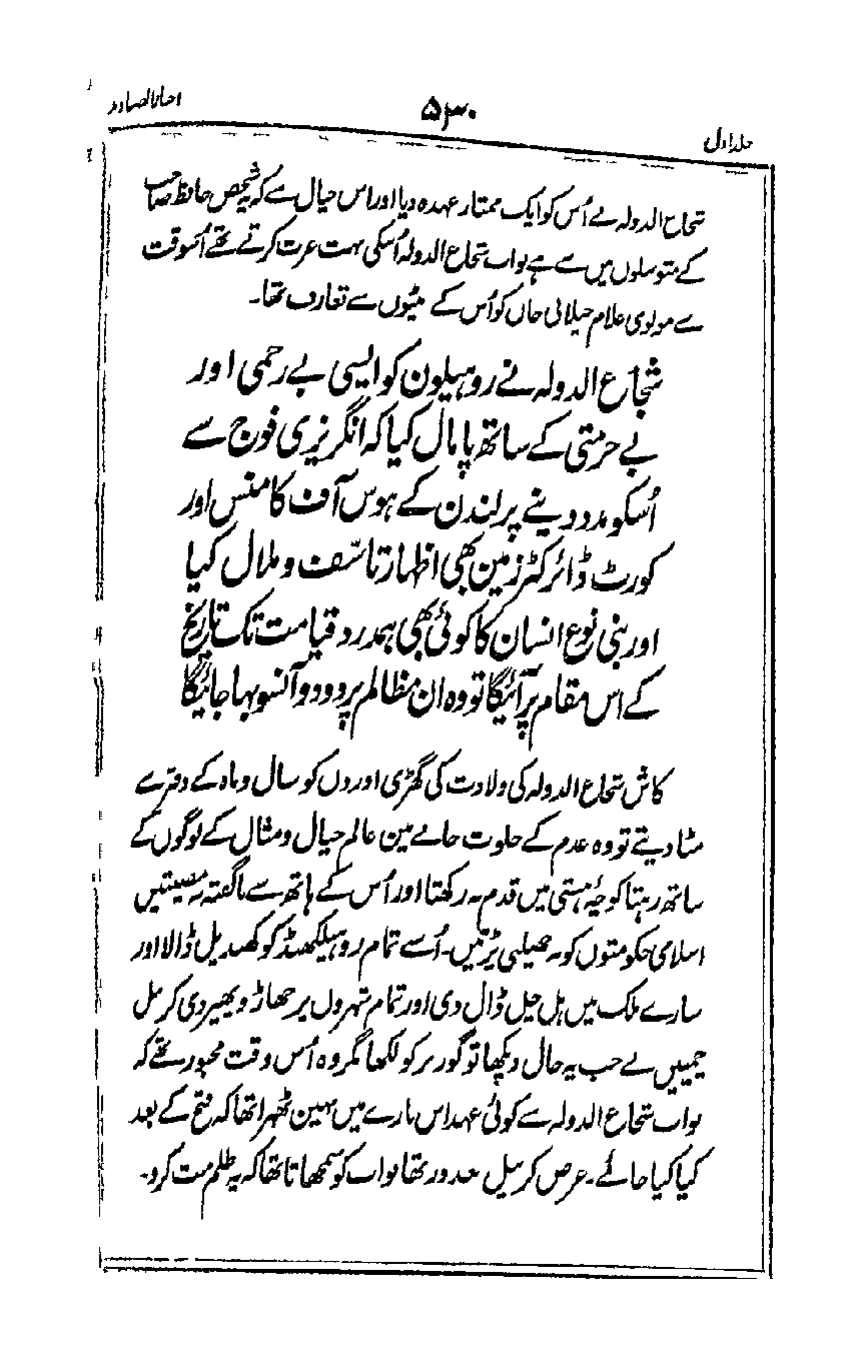 اخبار الصنادید
۵۳۰
جلد اول
شجاع الدولہ نے اُس کو ایک ممتاز عہدہ دیا اور اس خیال سے کہ یہ شخص حافظ صاحب
کے متوسلوں میں سے ہے نواب شجاع الدولہ اُسکی بہت عزت کرتے تھے اُسوقت
سے مولوی غلام جیلانی خاں کو اُس کے بیٹوں سے تعارف تھا۔
شجاع الدولہ نے روہیلون کو ایسی بے رحمی اور
بے حرمتی کے ساتھ پامال کیا کہ انگریزی فوج سے
اُسکو مدد دینے پر لندن کے ہوس آف کامنس اور
کورٹ ڈائرکٹرز مین بھی اظہار تاسّف و ملال کیا
اور بنی نوع انسان کا کوئی بھی ہمدرد قیامت تک تاریخ
کے اس مقام پر آئیگا تو وہ ان مظالم پر دو دو آنسو بہا جائیگا
کاش شجاع الدولہ کی ولادت کی گھڑی اور دن کو سال و ماہ کے دفتر سے
مٹا دیتے تو وہ عدم کے خلوت خانے مین عالم خیال و مثال کے لوگوں کے
ساتھ رہتا کوچۂ ہستی میں قدم نہ رکھتا اور اُس کے ہاتھ سے ناگفتہ بہ مصیبتیں
اسلامی حکومتوں کو نہ جھیلنی پڑتیں۔ اُسنے تمام روہیلکھنڈ کو کھدیل ڈالا اور
سارے ملک میں ہل چل ڈال دی اور تمام شہروں پر جھاڑو پھیر دی کرنل
چمپیں نے جب یہ حال دیکھا تو گورنر کو لکھا مگر وہ اُس وقت مجبور تھے کہ
نواب شجاع الدولہ سے کوئی عہد اس بارے میں نہین ٹھہرا تھا کہ فتح کے بعد
کیا کیا جائے۔ غرض کرنیل معذور تھا نواب کو سمجھاتا تھا کہ یہ ظلم مت کرو۔